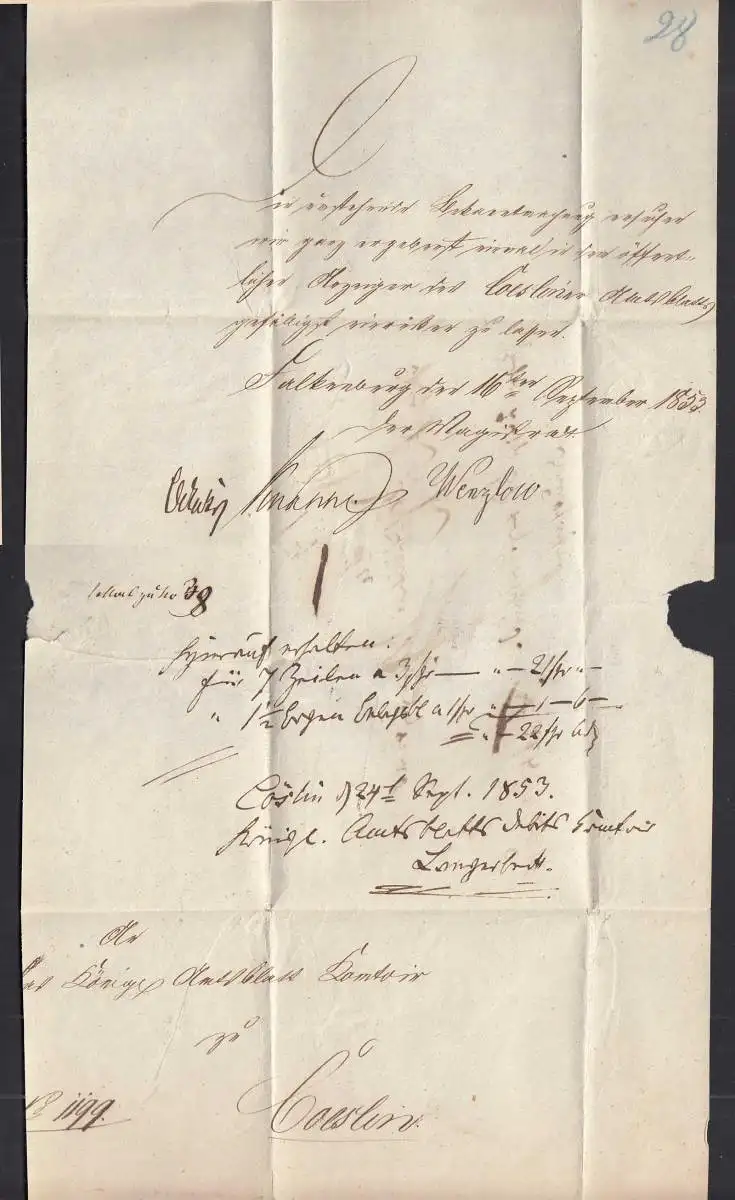 28
Die anstehende Bekanntmachung ersuchen
wir ganz ergebenst, einmal in den öffent=
lichen Anzeiger des Coesliner Amtsblatts
gefälligst einrücken zu lassen.
Falkenburg den 16ten September 1853
Der Magistrat
Knappe Wenzlow
38
Hierauf erhalten:
für 7 Zeilen a 3 sgr — " — 21 sgr " —
" 1½ bogen belegbl a 1 sgr " — 1 — 6 —
" — 22 sgr 6 d
Cöslin d 24t Sept. 1853.
Königl. Amtsblatts Debits Comtoir
An
das Königl Amtsblatt Comtoir
zu
Coeslin.
1199.